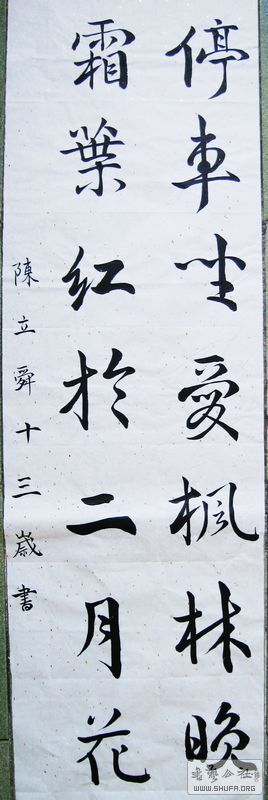 停車坐愛楓林晚
霜葉紅於二月花
陳立舜十三歲書
書藝公社
WWW.SHUFA.ORG